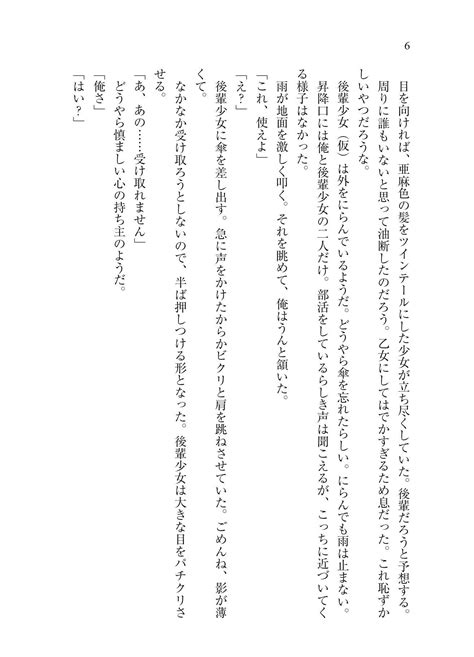 6
目を向ければ、亜麻色の髪をツインテールにした少女が立ち尽くしていた。後輩だろうと予想する。
周りに誰もいないと思って油断したのだろう。乙女にしてはでかすぎるため息だった。これ恥ずか
しいやつだろうな。
後輩少女（仮）は外をにらんでいるようだ。どうやら傘を忘れたらしい。にらんでも雨は止まない。
昇降口には俺と後輩少女の二人だけ。部活をしているらしき声は聞こえるが、こっちに近づいてく
る様子はなかった。
雨が地面を激しく叩く。それを眺めて、俺はうんと頷いた。
「これ、使えよ」
「え？」
後輩少女に傘を差し出す。急に声をかけたからかビクリと肩を跳ねさせていた。ごめんね、影が薄
くて。
なかなか受け取ろうとしないので、半ば押しつける形となった。後輩少女は大きな目をパチクリさ
せる。
「あ、あの……受け取れません」
どうやら慎ましい心の持ち主のようだ。
「俺さ」
「はい？」